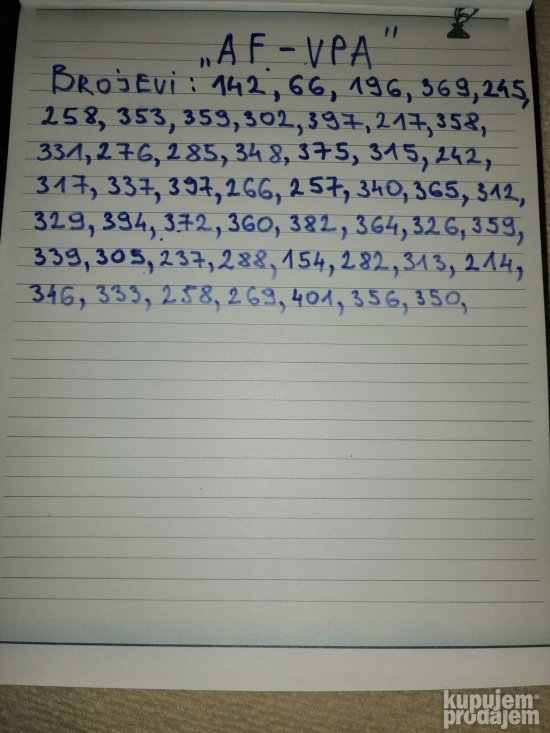 „AF-VPA"
BROJEVI: 142, 66, 196, 369, 245,
258, 353, 359, 302, 397, 217, 358,
331, 276, 285, 348, 375, 315, 242,
317, 337, 397, 266, 257, 340, 365, 312,
329, 394, 372, 360, 382, 364, 326, 359,
339, 305, 237, 288, 154, 282, 313, 214,
346, 333, 258, 269, 401, 356, 350,
kupujem
prodajem